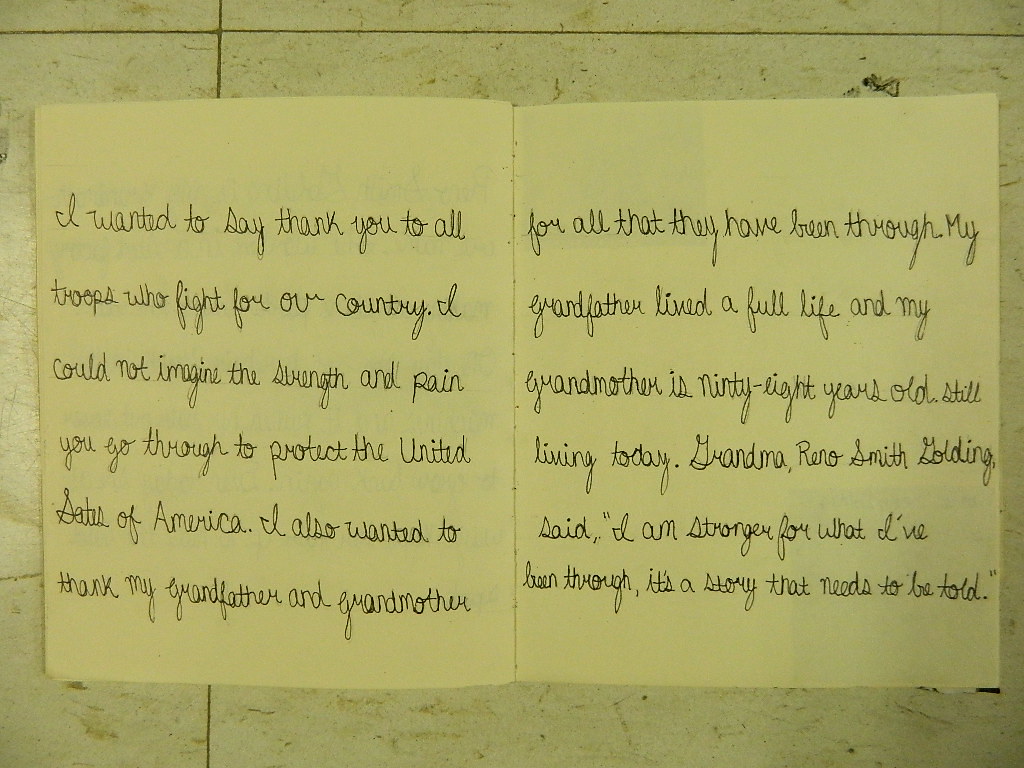 I wanted to say thank you to all
troops who fight for our country. I
could not imagine the strength and pain
you go through to protect the United
Sates of America. I also wanted to
thank my grandfather and grandmother
for all that they have been through. My
grandfather lived a full life and my
grandmother is ninty-eight years old. still
living today. Grandma, Reno Smith Golding,
said, "I am stronger for what I've
been through, it's a story that needs to be told."